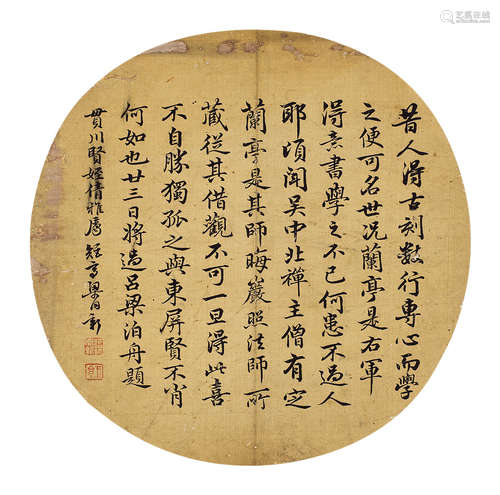 昔人得古刻數行專心而學
之便可名世況蘭亭是右軍
得意書學之不已何患不過人
耶頃聞吳中北禪主僧有定
蘭亭是其師晦巖照法師所
藏從其借觀不可一旦得此喜
不自勝獨孤之與東屏賢不肖
何如也廿三日將過呂梁泊舟題
貫川賢姪倩雅屬 梁日新